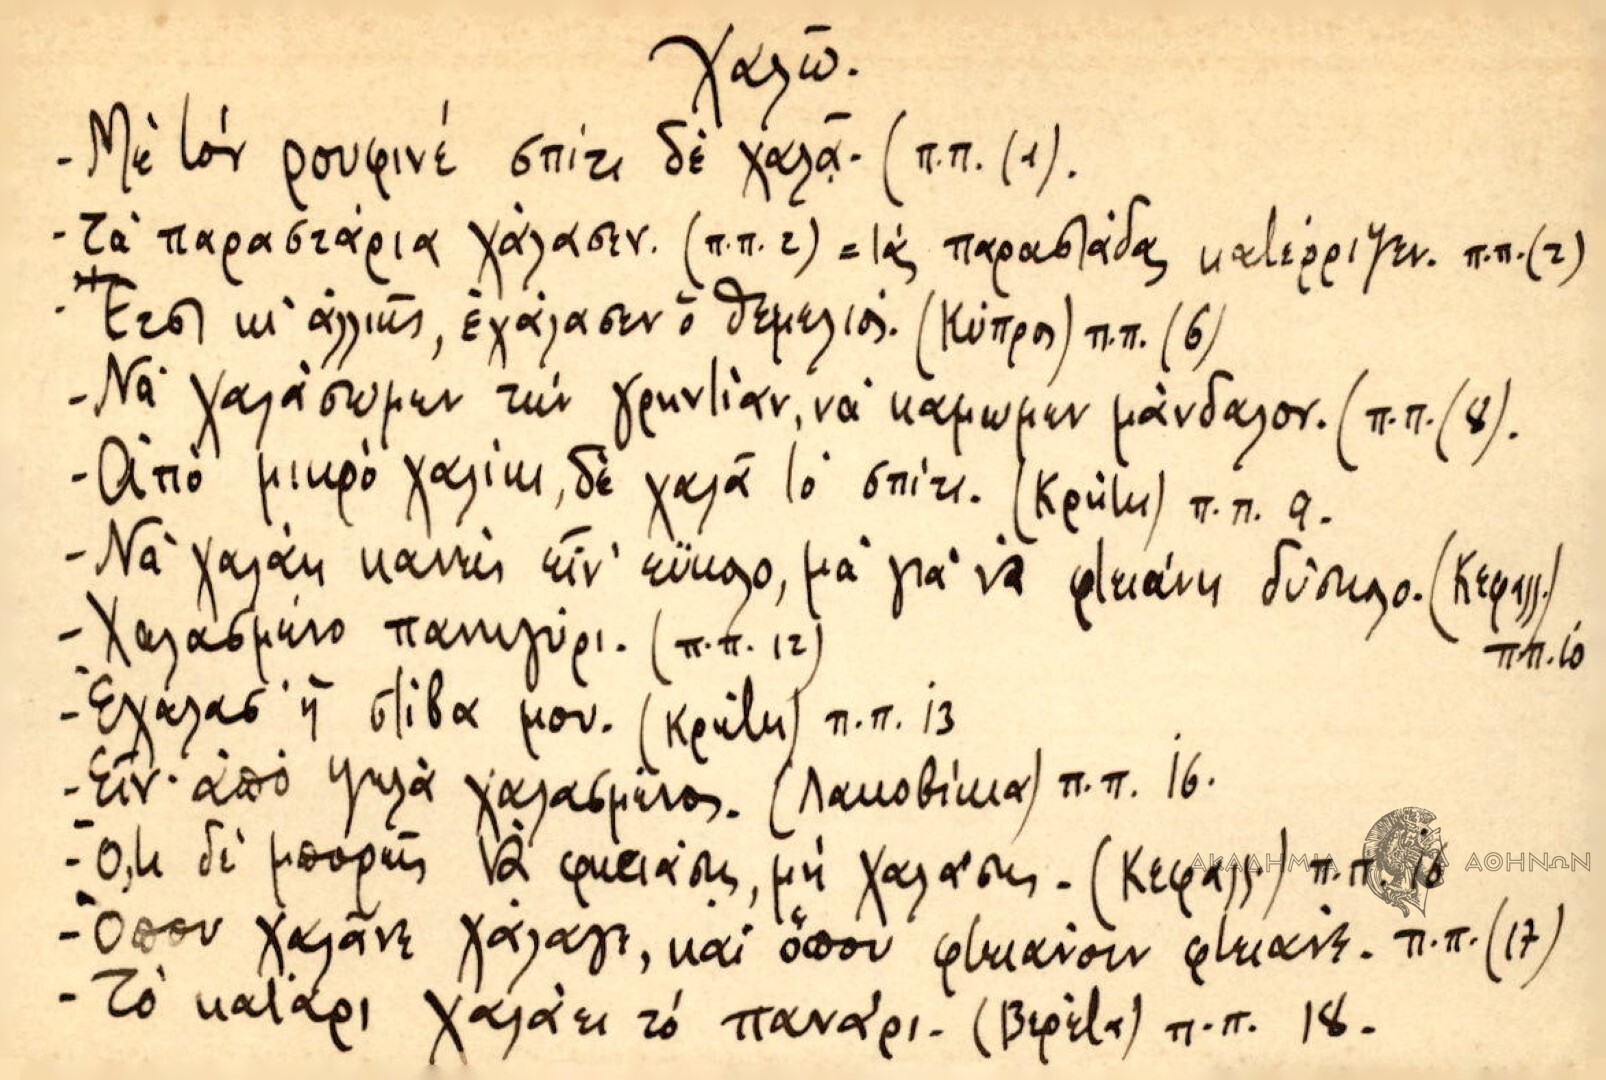 Χαλῶ.
- Μὲ τὸν ρουφινὲ σπίτι δὲ χαλᾷ. (π.π. (1).
- Τὰ παραστάρια χάλασεν. (π.π. 2) = τὰς παραστάδας κατέρριψεν. π.π. (2)
- Ἔτσι κι' ἀλλιῶς, ἐχάλασεν ὁ θεμελιός. (Κύπρος) π.π. (6)
- Νὰ χαλάσωμεν τὴν γρεντιὰν, νὰ κάμωμεν μάνδαλον. (π.π. (8).
- Ἀπὸ μικρὸ χαλίκι, δὲ χαλᾶ τὸ σπίτι. (Κρήτη) π.π. 9.
- Νὰ χαλάῃ κανεὶς εἶν' εὔκολο, μὰ γιὰ νὰ φτειάνῃ δύσκολο. (Κεφαλλ.)
π.π. 10
- Χαλασμένο πανηγύρι. (π.π. 12)
- Ἐχάλασ' ἡ στίβα μου. (Κρήτη) π.π. 13
- Εἶν' ἀπὸ ψηλὰ χαλασμένος. (Λακοβίκια) π.π. 16.
- Ὅ,τι δὲ μπορῇς νὰ φτειάσῃς, μὴ χαλάσῃς. (Κεφαλλ.) π.π. 16
- Ὅπου χαλᾶνε χάλαγε, καὶ ὅπου φτειάνουν φτειάνε. π.π. (17)
- Τὸ κατάρι χαλάει τὸ πανάρι. (Βερέτα) π.π. 18.
ΑΚΑΔΗΜΙΑ ΑΘΗΝΩΝ